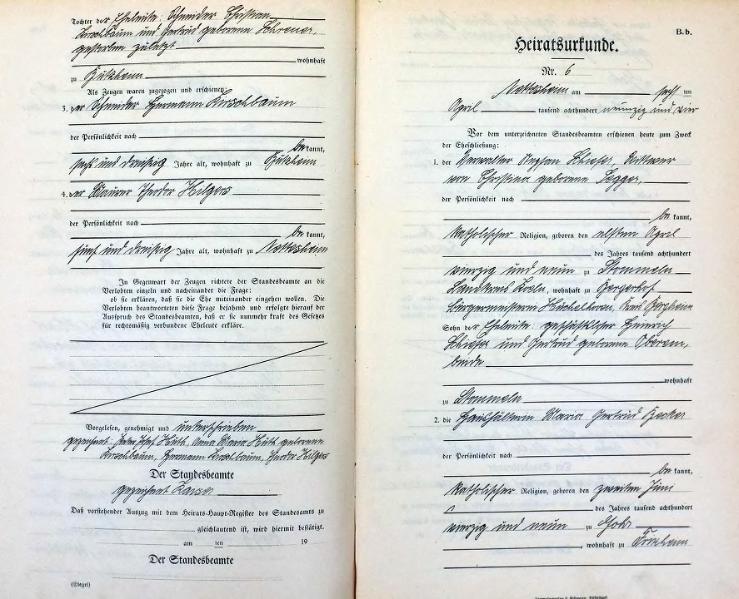 Tochter der Eheleute, Schneider Christian
Kirschbaum und Gertrud geborene
gestorben zuletzt
wohnhaft
zu Bützheim
Als Zeugen waren zugezogen und erschienen:
3. der Schneider Hermann Kirschbaum
der Persönlichkeit nach
be kannt,
sechs und dreißig Jahre alt, wohnhaft zu Bützheim
4. der Maurer Theodor Hilgers
der Persönlichkeit nach
be kannt,
fünf und dreißig Jahre alt, wohnhaft zu Nettesheim
In Gegenwart der Zeugen richtete der Standesbeamte an die
Verlobten einzeln und nacheinander die Frage:
ob sie erklären, daß sie die Ehe miteinander eingehen wollen. Die
Verlobten beantworteten diese Frage bejahend und erfolgte hierauf der
Ausspruch des Standesbeamten, daß er sie nunmehr kraft des Gesetzes
für rechtmäßig verbundene Eheleute erkläre.
Vorgelesen, genehmigt und unterschrieben
gezeichnet: Peter Josef Hüth, Anna Maria Hüth geborene
Kirschbaum, Hermann Kirschbaum, Theodor Hilgers
Der Standesbeamte
gezeichnet
Daß vorstehender Auszug mit dem Heirats-Haupt-Register des Standesamts zu
gleichlautend ist, wird hiermit bestätigt.
am ten 19
Der Standesbeamte
(Siegel)
B.b.
Heiratsurkunde.
Nr. 6
Nettesheim am sechs ten
April tausend achthundert neunzig und vier
Vor dem unterzeichneten Standesbeamten erschienen heute zum Zweck
der Eheschließung:
1. der Verwalter Stephan Schiefer, Wittwer
von Christina geborene
der Persönlichkeit nach
be kannt,
katholischer Religion, geboren den elften April
des Jahres tausend achthundert
vierzig und neun zu Stommeln
Landkreis Köln, wohnhaft zu Bergerhof
Bürgermeisterei Hüchelhoven, Kreis Bergheim
Sohn der Eheleute, geschäftslose Heinrich
Schiefer und Gertrud geborene
beide
wohnhaft
zu Stommeln
2. die Haushälterin Maria Gertrud Becker
der Persönlichkeit nach
be kannt,
katholischer Religion, geboren den zweiten Juni
des Jahres tausend achthundert
vierzig und neun zu Gohr
wohnhaft zu